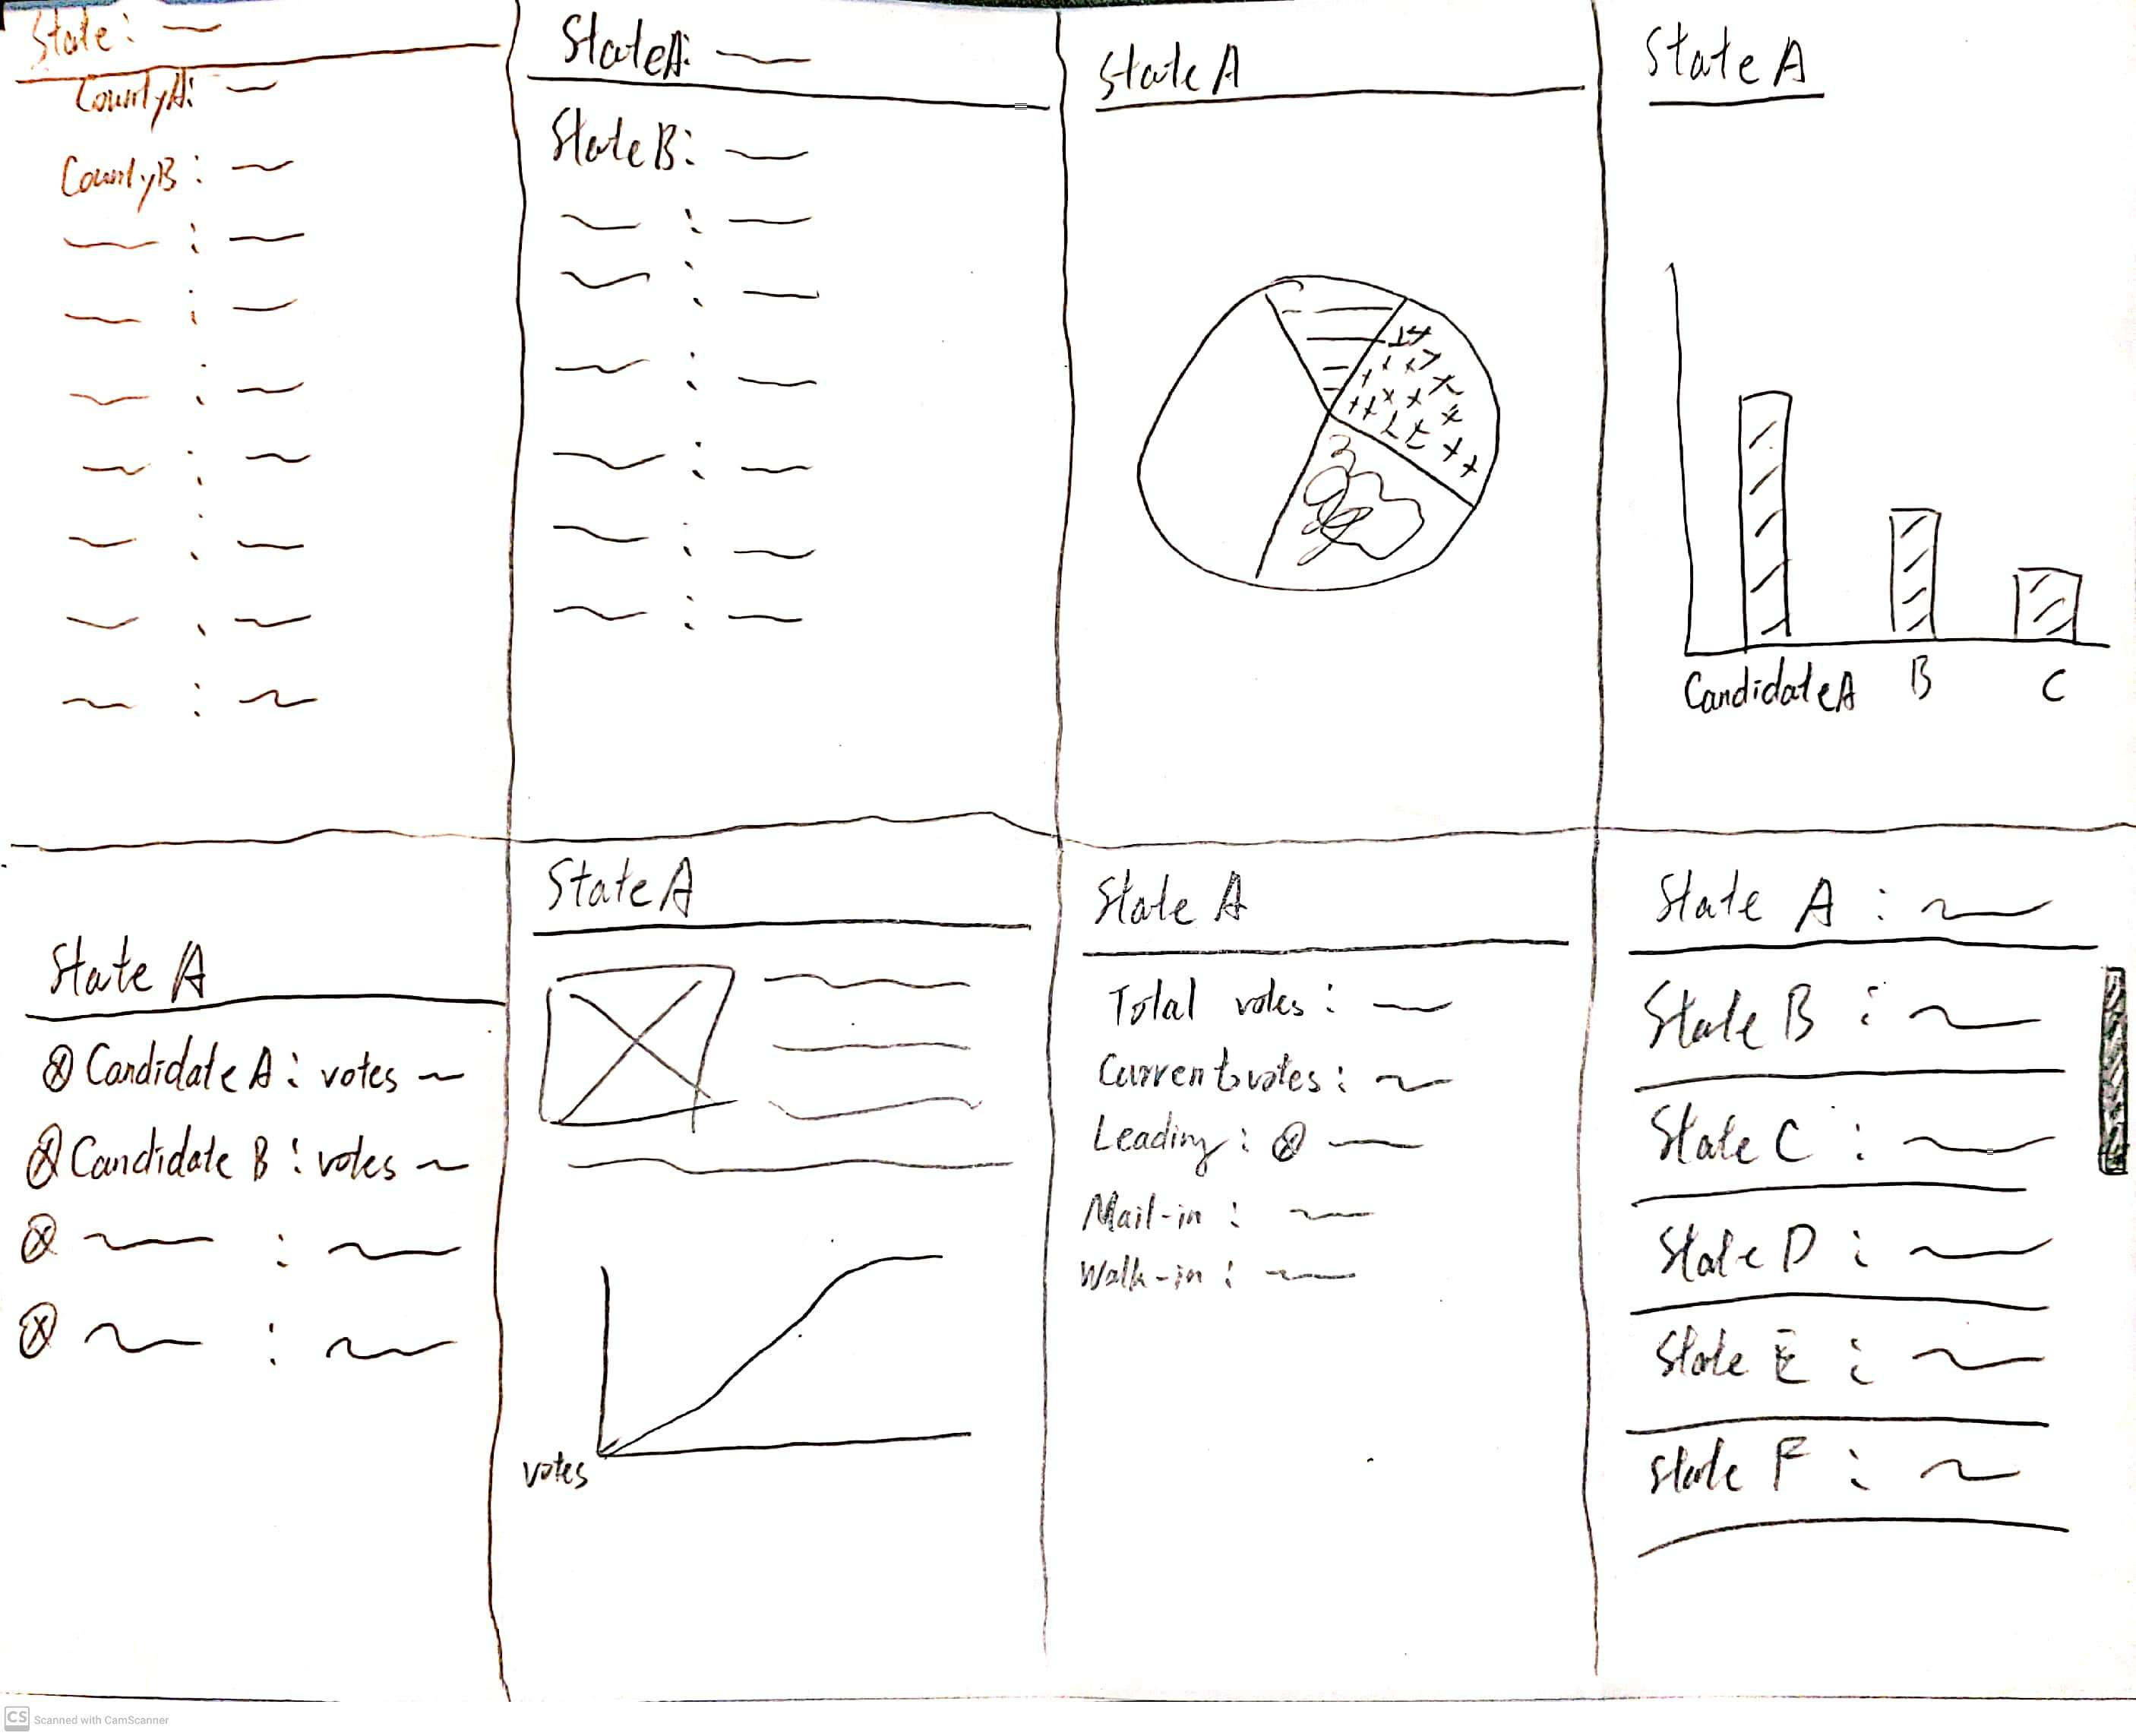 State:
CountyA:
CountyB:
StateA:
StateB:
State A
State A
CandidateA B C
State A
Candidate A: votes
Candidate B: votes
State A
votes
State A
Total votes:
Current votes:
Leading:
Mail-in:
Walk-in:
State A:
State B:
State C:
State D:
State E:
State F:
CS Scanned with CamScanner